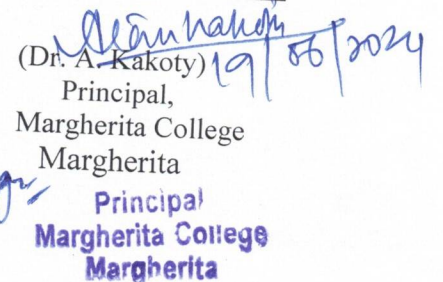 (Dr. A. Kakoty) 19/06/2024
Principal,
Margherita College
Margherita
Principal
Margherita College
Margherita